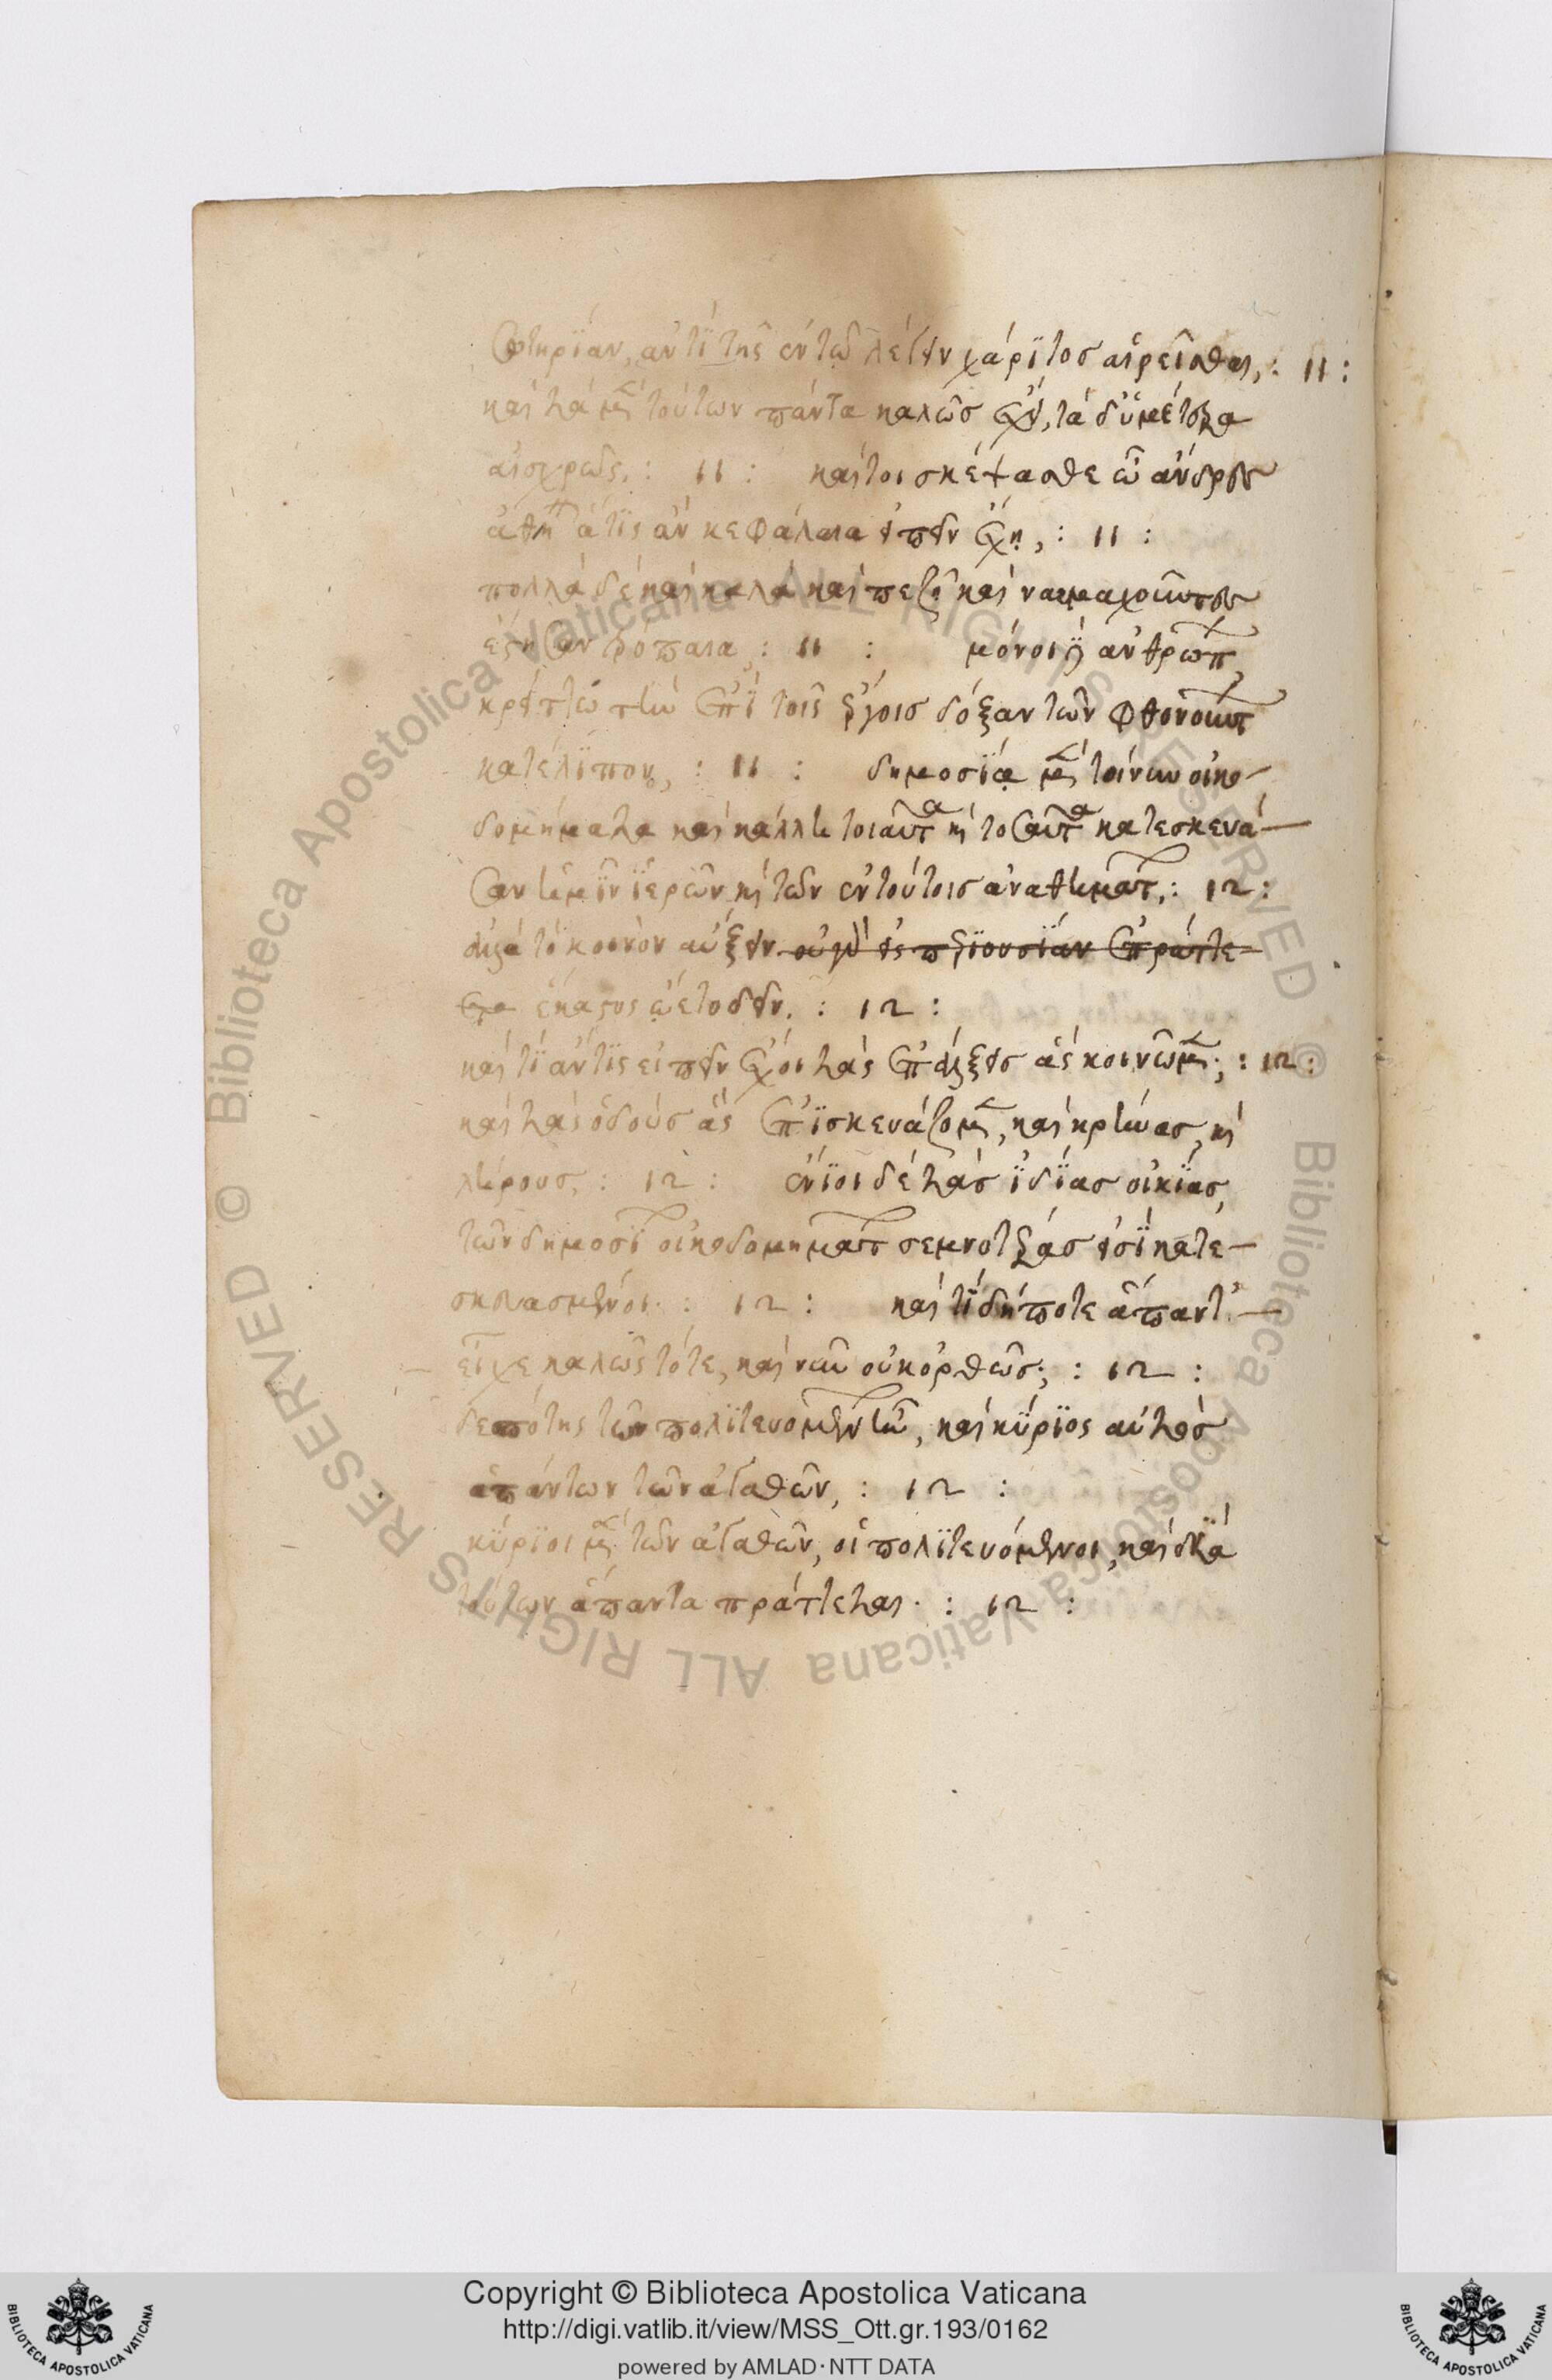 σωτηρίαν, ἀντὶ τῆς ἐν τῷ λέγειν χάριτος αἱρεῖσθαι, : 11 :
καὶ τὰ μὲν τούτων πάντα καλῶς ἔχειν, τὰ δ' ὑμέτερα
αἰσχρῶς, : 11 : καίτοι σκέψασθε ὦ ἄνδρες
ἀθην ἅ τις ἂν κεφάλαια εἰπεῖν ἔχῃ, : 11 :
πολλὰ δὲ καὶ καλὰ καὶ πεζῇ καὶ ναυμαχοῦντες
ἔστησαν τρόπαια, : 11 : μόνοι δὲ ἀνθρώπων
κρείττω τὴν ἐπὶ τοῖς ἔργοις δόξαν τῶν φθονούντων
κατέλιπον, : 11 : δημοσίᾳ μὲν τοίνυν οἰκο-
δομήματα καὶ κάλλη τοιαῦτα καὶ τοσαῦτα κατεσκευά-
σαν ἡμῖν ἱερῶν καὶ τῶν ἐν τούτοις ἀναθημάτων, : 12 :
ἀλλὰ τὸ κοινὸν αὔξειν οὐ γὰρ εἰς περιουσίαν ἐπράττε-
ἕκαστος ᾤετο δεῖν. : 12 :
καὶ τί ἄν τις εἰπεῖν ἔχοι τὰς ἐπάλξεις ἃς κοινῶμεν; : 12 :
καὶ τὰς ὁδοὺς ἃς ἐπισκευάζομεν, καὶ κρήνας, καὶ
λήρους, : 12 : ἔνιοι δὲ τὰς ἰδίας οἰκίας
τῶν δημοσίων οἰκοδομημάτων σεμνοτέρας εἰσὶ κατε-
σκευασμένοι. : 12 : καὶ τί δήποτε ἅπαντ'
εἶχε καλῶς τότε, καὶ νῦν οὐκ ὀρθῶς; : 12 :
δεσπότης τῶν πολιτευομένων ἦν, καὶ κύριος αὐτὸς
ἁπάντων τῶν ἀγαθῶν, : 12 :
κύριοι μὲν τῶν ἀγαθῶν, οἱ πολιτευόμενοι, καὶ διὰ
τούτων ἅπαντα πράττεται. : 12 :
Copyright © Biblioteca Apostolica Vaticana
http://digi.vatlib.it/view/MSS_Ott.gr.193/0162
powered by AMLAD·NTT DATA